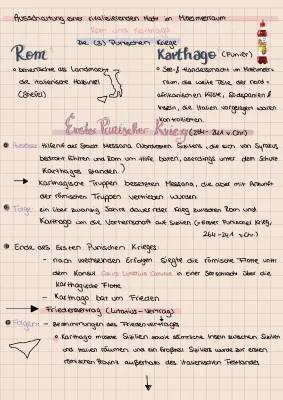 Ausschaltung einer rivalisierenden Macht im Mittelmeerraum
Rom und Karthago
Die (3) Punischen Kriege
Rom
Karthago (Punier)
beherrschte als Landmacht
die italische Halbinsel
(Stiefel)
See- & Handelsmacht im Mittelmeer-
raum, die weite Teile der nord-
afrikanischen Küste, Südspanien &
Inseln, die Italien vorgelagert waren
kontrollierten.
Erster Punischer Krieg (264-241 v.Chr)
Auslöser: Hilferuf der Stadt Messana (Nordosten Siziliens, die sich von Syrakus
bedroht fühlten und Rom um Hilfe baten, allerdings unter dem Schutz
Karthagos standen.)
Karthagische Truppen besetzten Messana, die aber mit Ankunft
der römischen Truppen vertrieben wurden
Folge: ein über zwanzig Jahre dauernder Krieg zwischen Rom und
Karthago um die Vorherrschaft auf Sizilien (= Erster Punischer Krieg,
264-241 v.Chr.)
Ende des Ersten Punischen Krieges:
- nach wechselnden Erfolgen siegte die römische Flotte unter
dem Konsul Gaius Lutatius Catulus in einer Seeschlacht über die
Karthagische Flotte
- Karthago bat um Frieden
Friedensvertrag (Lutatius-Vertrag)
Folgen: = Bestimmungen des Friedensvertrages
Karthago musste Sizilien sowie sämtliche Inseln zwischen Sizilien
und Italien räumen und ein Großteil Siziliens wurde zur ersten
römischen Provinz außerhalb des italienischen Festlandes